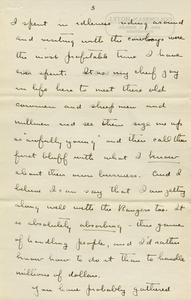 3
I spent in idleness riding around
and visiting with the cowboys were
the most profitable time I have
ever spent. It is my chief joy
in life here to meet these old
cowmen and sheep men and
millmen and see them size me up
as "awfully young" and then call their
first bluff with what I know
about their own business. And I
believe I can say that I am getting
along well with the Rangers too. It
is absolutely absorbing - this game
of handling people, and I'd rather
know how to do it than to handle
millions of dollars.
You have probably gathered